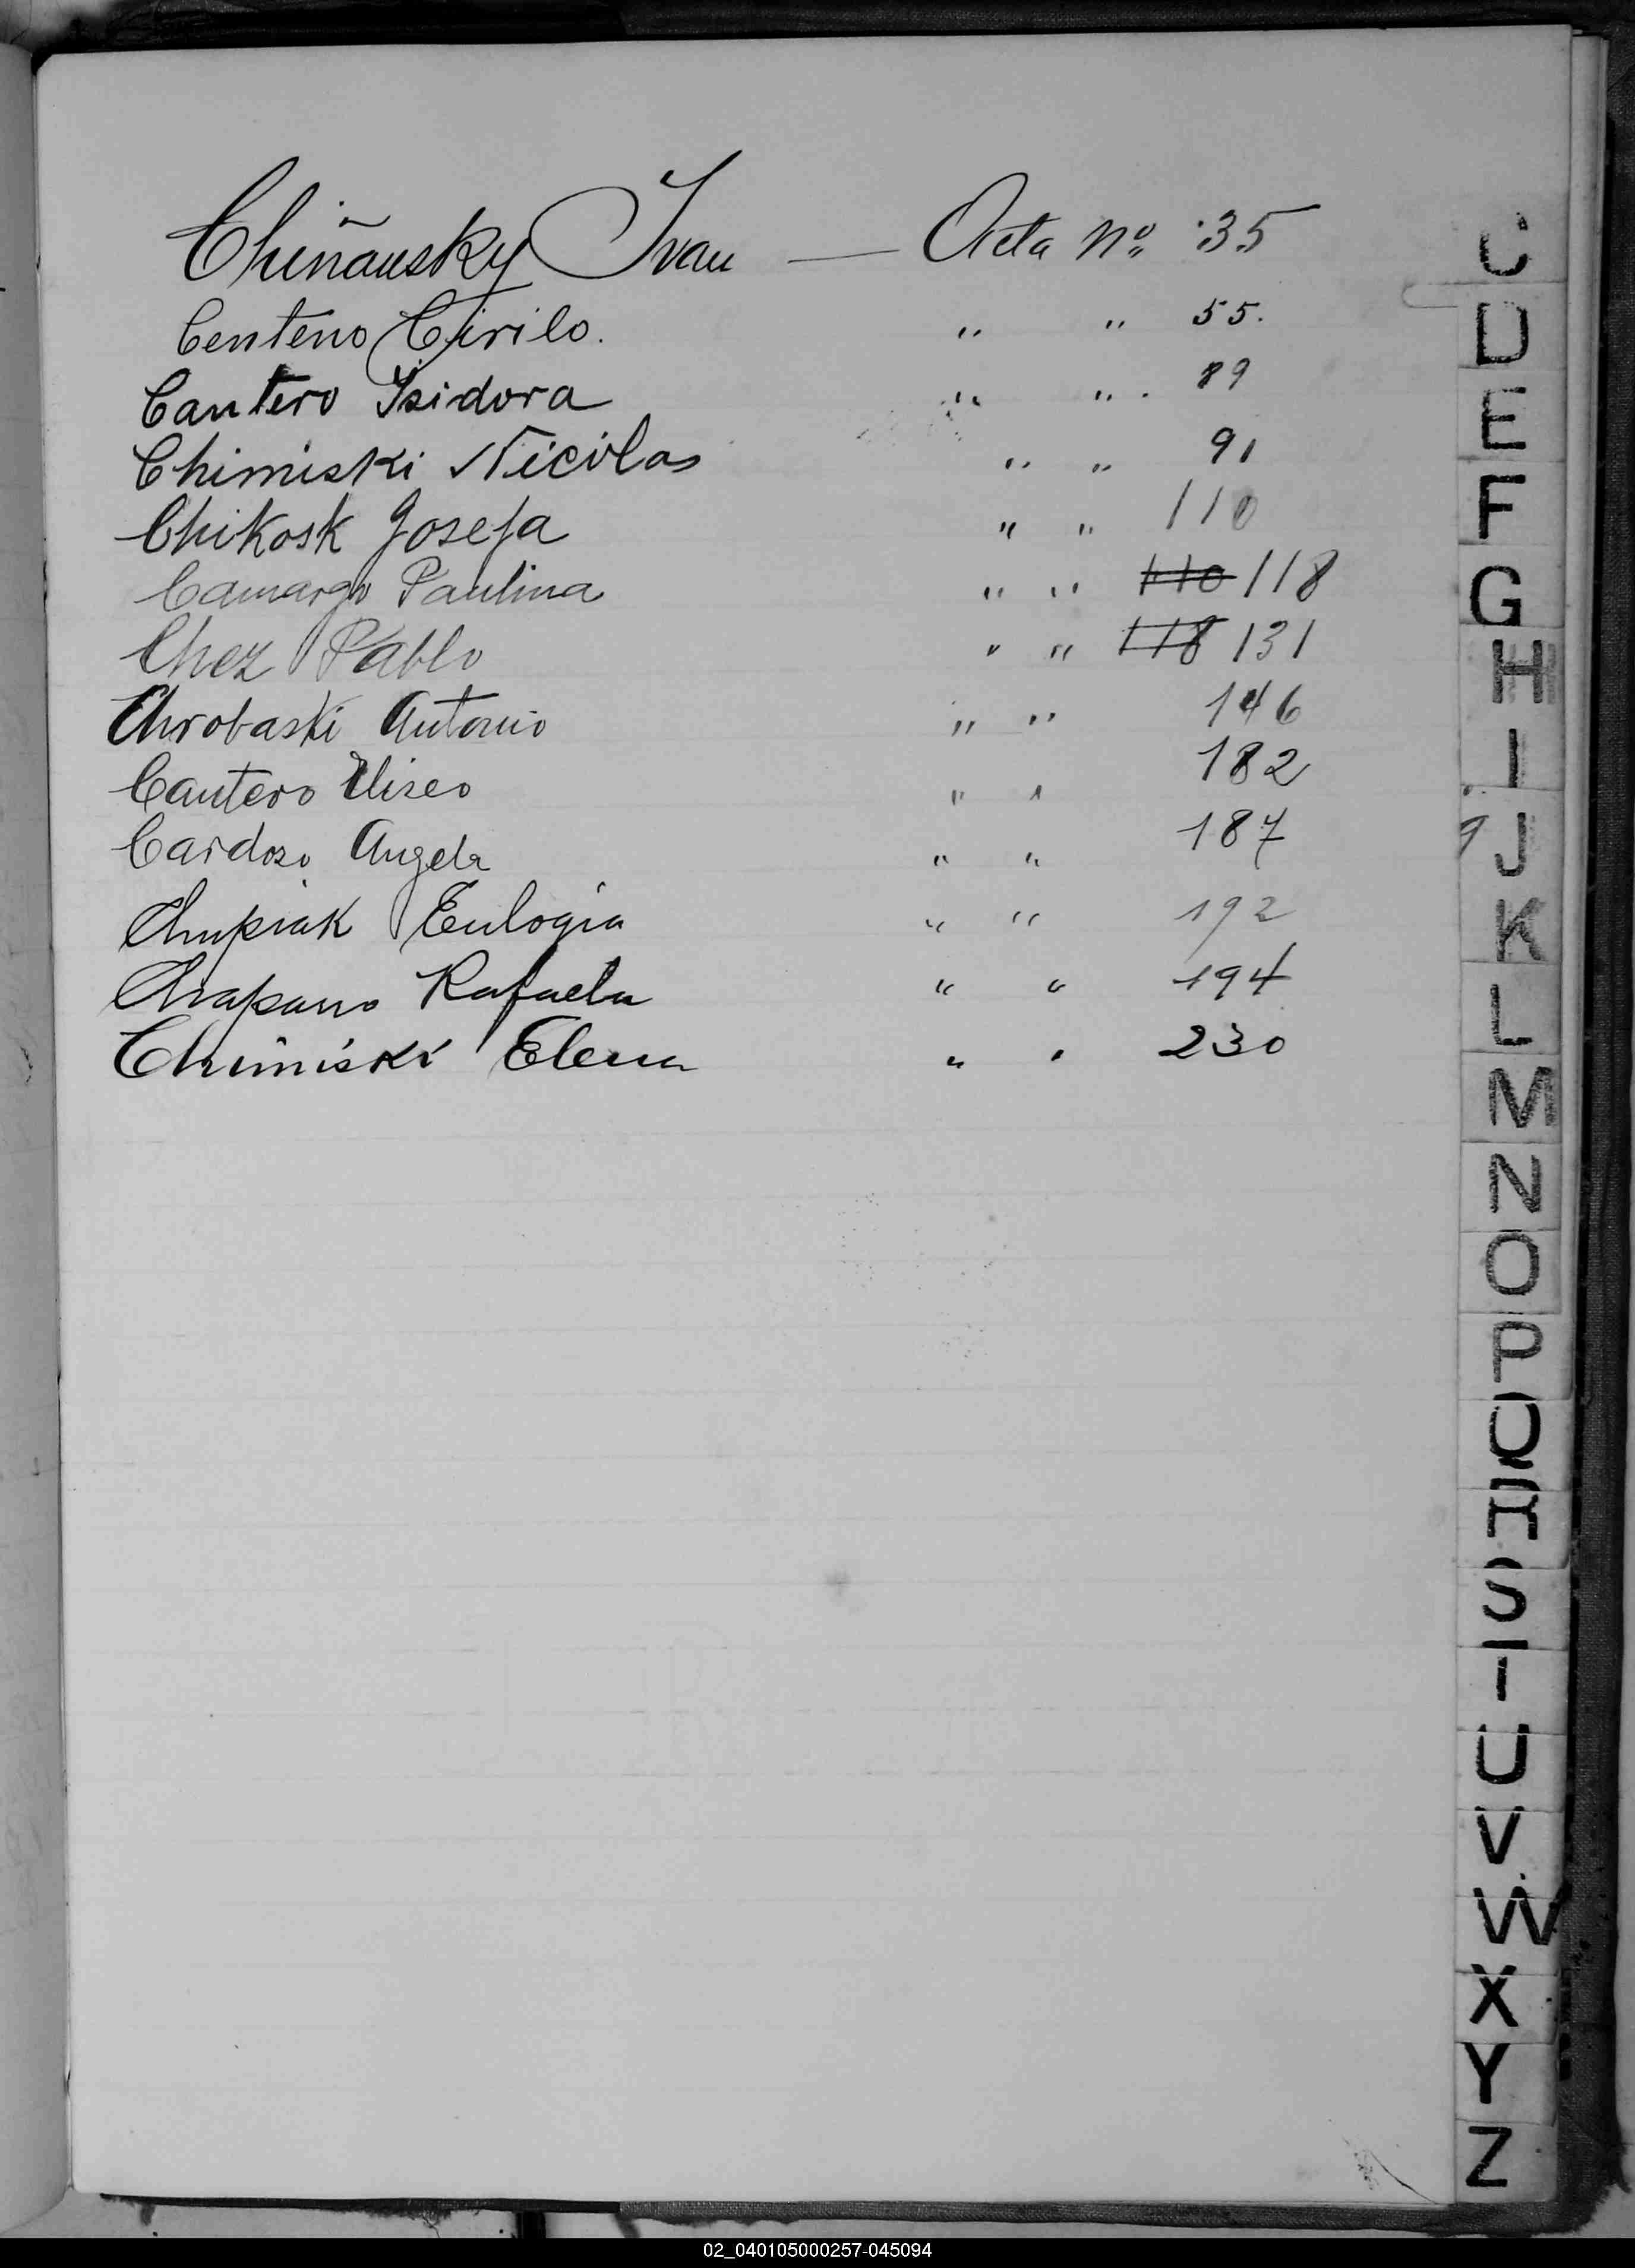 Chiñausky Ivan — Acta Nº 35
Centeno Cirilo. " " 55.
Cantero Isidora " " . 89
Chimiski Nicolas " " 91
Chikosk Josefa " " 110
Camargo Paulina " " 110 118
Chez Pablo " " 118 131
Chrobaski Antonio " " 146
Cantero Eliseo " " 182
Cardozo Angela " " 187
Chupiak Eulogia " " 192
Chrapano Rafaela " " 194
Chimiski Elena " " 230
C
D
E
F
G
H
I
J
K
L
M
N
O
P
Q
R
S
T
U
V
W
X
Y
Z
02_040105000257-045094